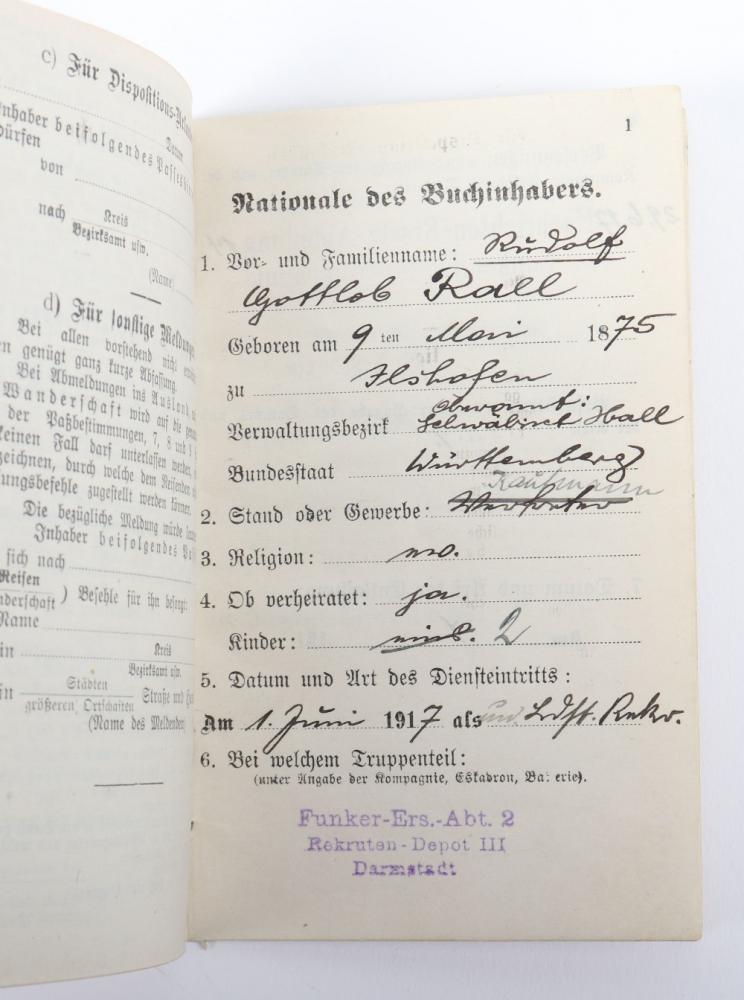 c) Für Dispositions-
Inhaber beifolgendes
Datum
dürfen
von
nach Kreis
Bezirksamt usw.
(Name)
d) Für sonstige
Bei allen vorstehend nicht
genügt ganz kurze Abfassung.
Bei Abmeldungen ins Ausland,
Wanderschaft wird auf die
der Paßbestimmungen, 7, 8 und 9
keinen Fall darf unterlassen werden,
durch welche dem Reisenden
zugestellt werden können.
Die bezügliche Meldung würde
Inhaber beifolgendes
sich nach
Reisen
) Befehle für ihn besorgt:
Name
in Kreis
Bezirksamt usw.
in Städten
größeren Ortschaften Straße und
(Name des Meldenden)
1
Nationale des Buchinhabers.
1. Vor- und Familienname: Rudolf
Gottlob Rall
Geboren am 9 ten Mai 1875
zu Ilshofen
Oberamt:
Verwaltungsbezirk Schwäbisch Hall
Bundesstaat Württemberg
Kaufmann
2. Stand oder Gewerbe:
3. Religion: ev.
4. Ob verheiratet: ja.
Kinder: eins. 2
5. Datum und Art des Diensteintritts:
Am 1. Juni 1917 als Ldst. Rekr.
6. Bei welchem Truppenteil:
(unter Angabe der Kompagnie, Eskadron, Batterie).
Funker-Ers.-Abt. 2
Rekruten-Depot III
Darmstadt